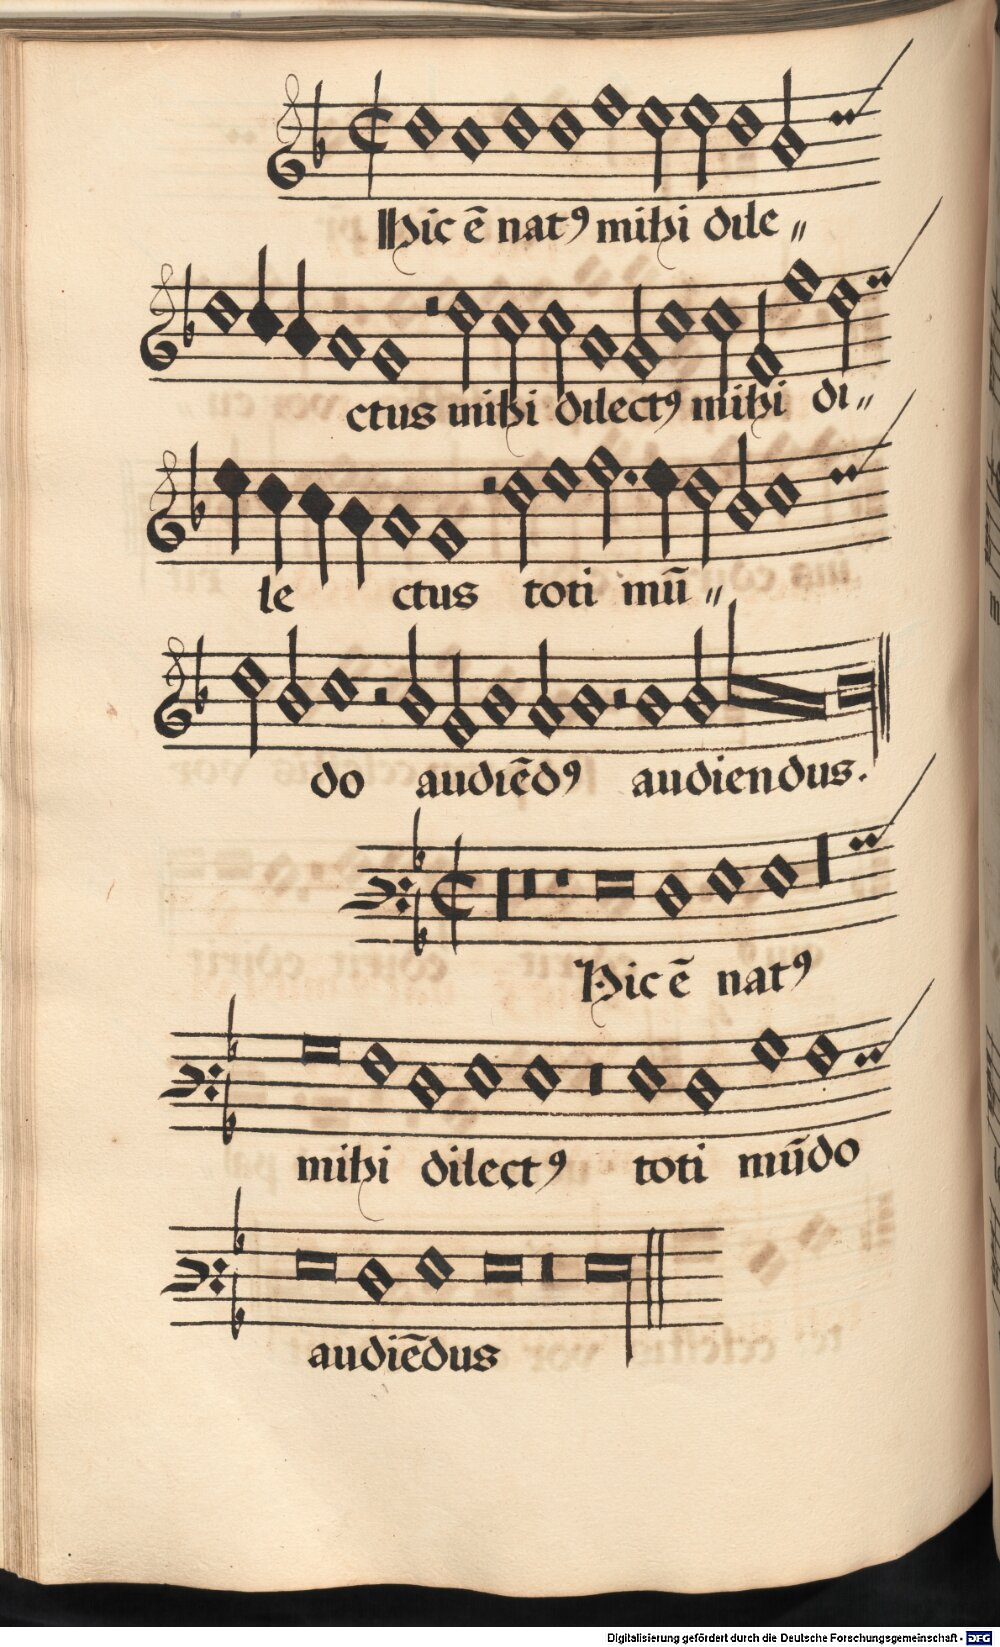 Hic ē natꝰ mihi dile〃
ctus mihi dilectꝰ mihi di〃
le ctus toti mū〃
do audiēdꝰ audiendus.
Hic ē natꝰ
mihi dilectꝰ toti mūdo
audiēdus
Digitalisierung gefördert durch die Deutsche Forschungsgemeinschaft - DFG